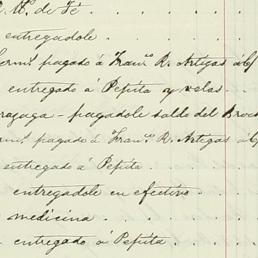 . M. de Fé
entregadole
Germl. pagado á Franco. R. Artigas á %
entregado á Pepita y velas
pagadole saldo del
Germl. pagado á Franco. R. Artigas á %
entregado á Pepita
entregadole en efectivo
medicina
entregado á Pepita